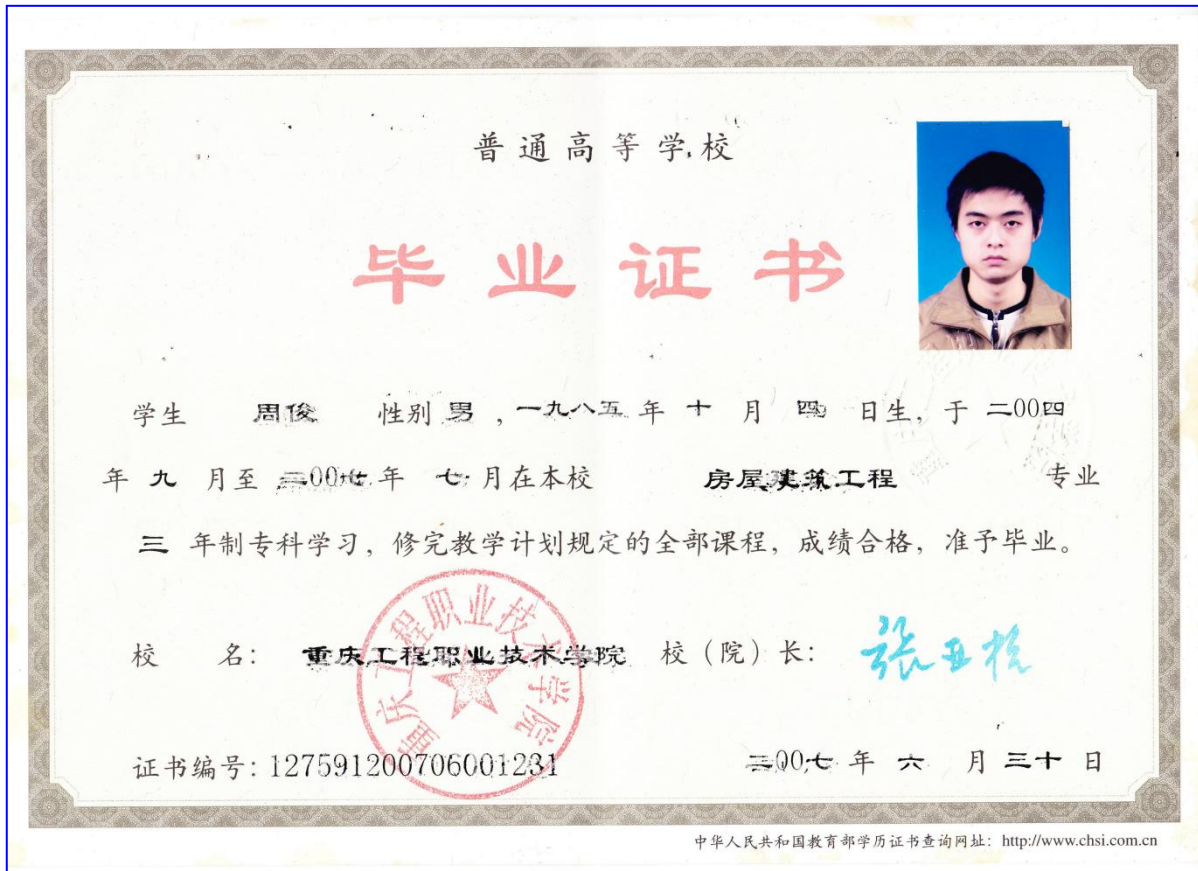 普通高等学校
毕业证书
学生 周俊 性别 男 ,一九八五 年 十 月 四 日生, 于 二00四
年 九 月至 二00七 年 七 月在本校 房屋建筑工程 专业
三 年制专科学习, 修完教学计划规定的全部课程, 成绩合格, 准予毕业。
校 名: 重庆工程职业技术学院 校(院)长: 张亚杭
重庆工程职业技术学院
证书编号: 127591200706001231 二00七 年 六 月 三十 日
中华人民共和国教育部学历证书查询网址: http://www.chsi.com.cn